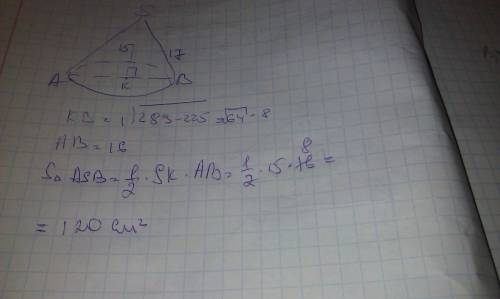 S
15
17
A
B
K
KB = √289-225 = √64 = 8
AB = 16
S△ ASB = 1/2 · SK · AB = 1/2 · 15 · 16 8 =
= 120 см²